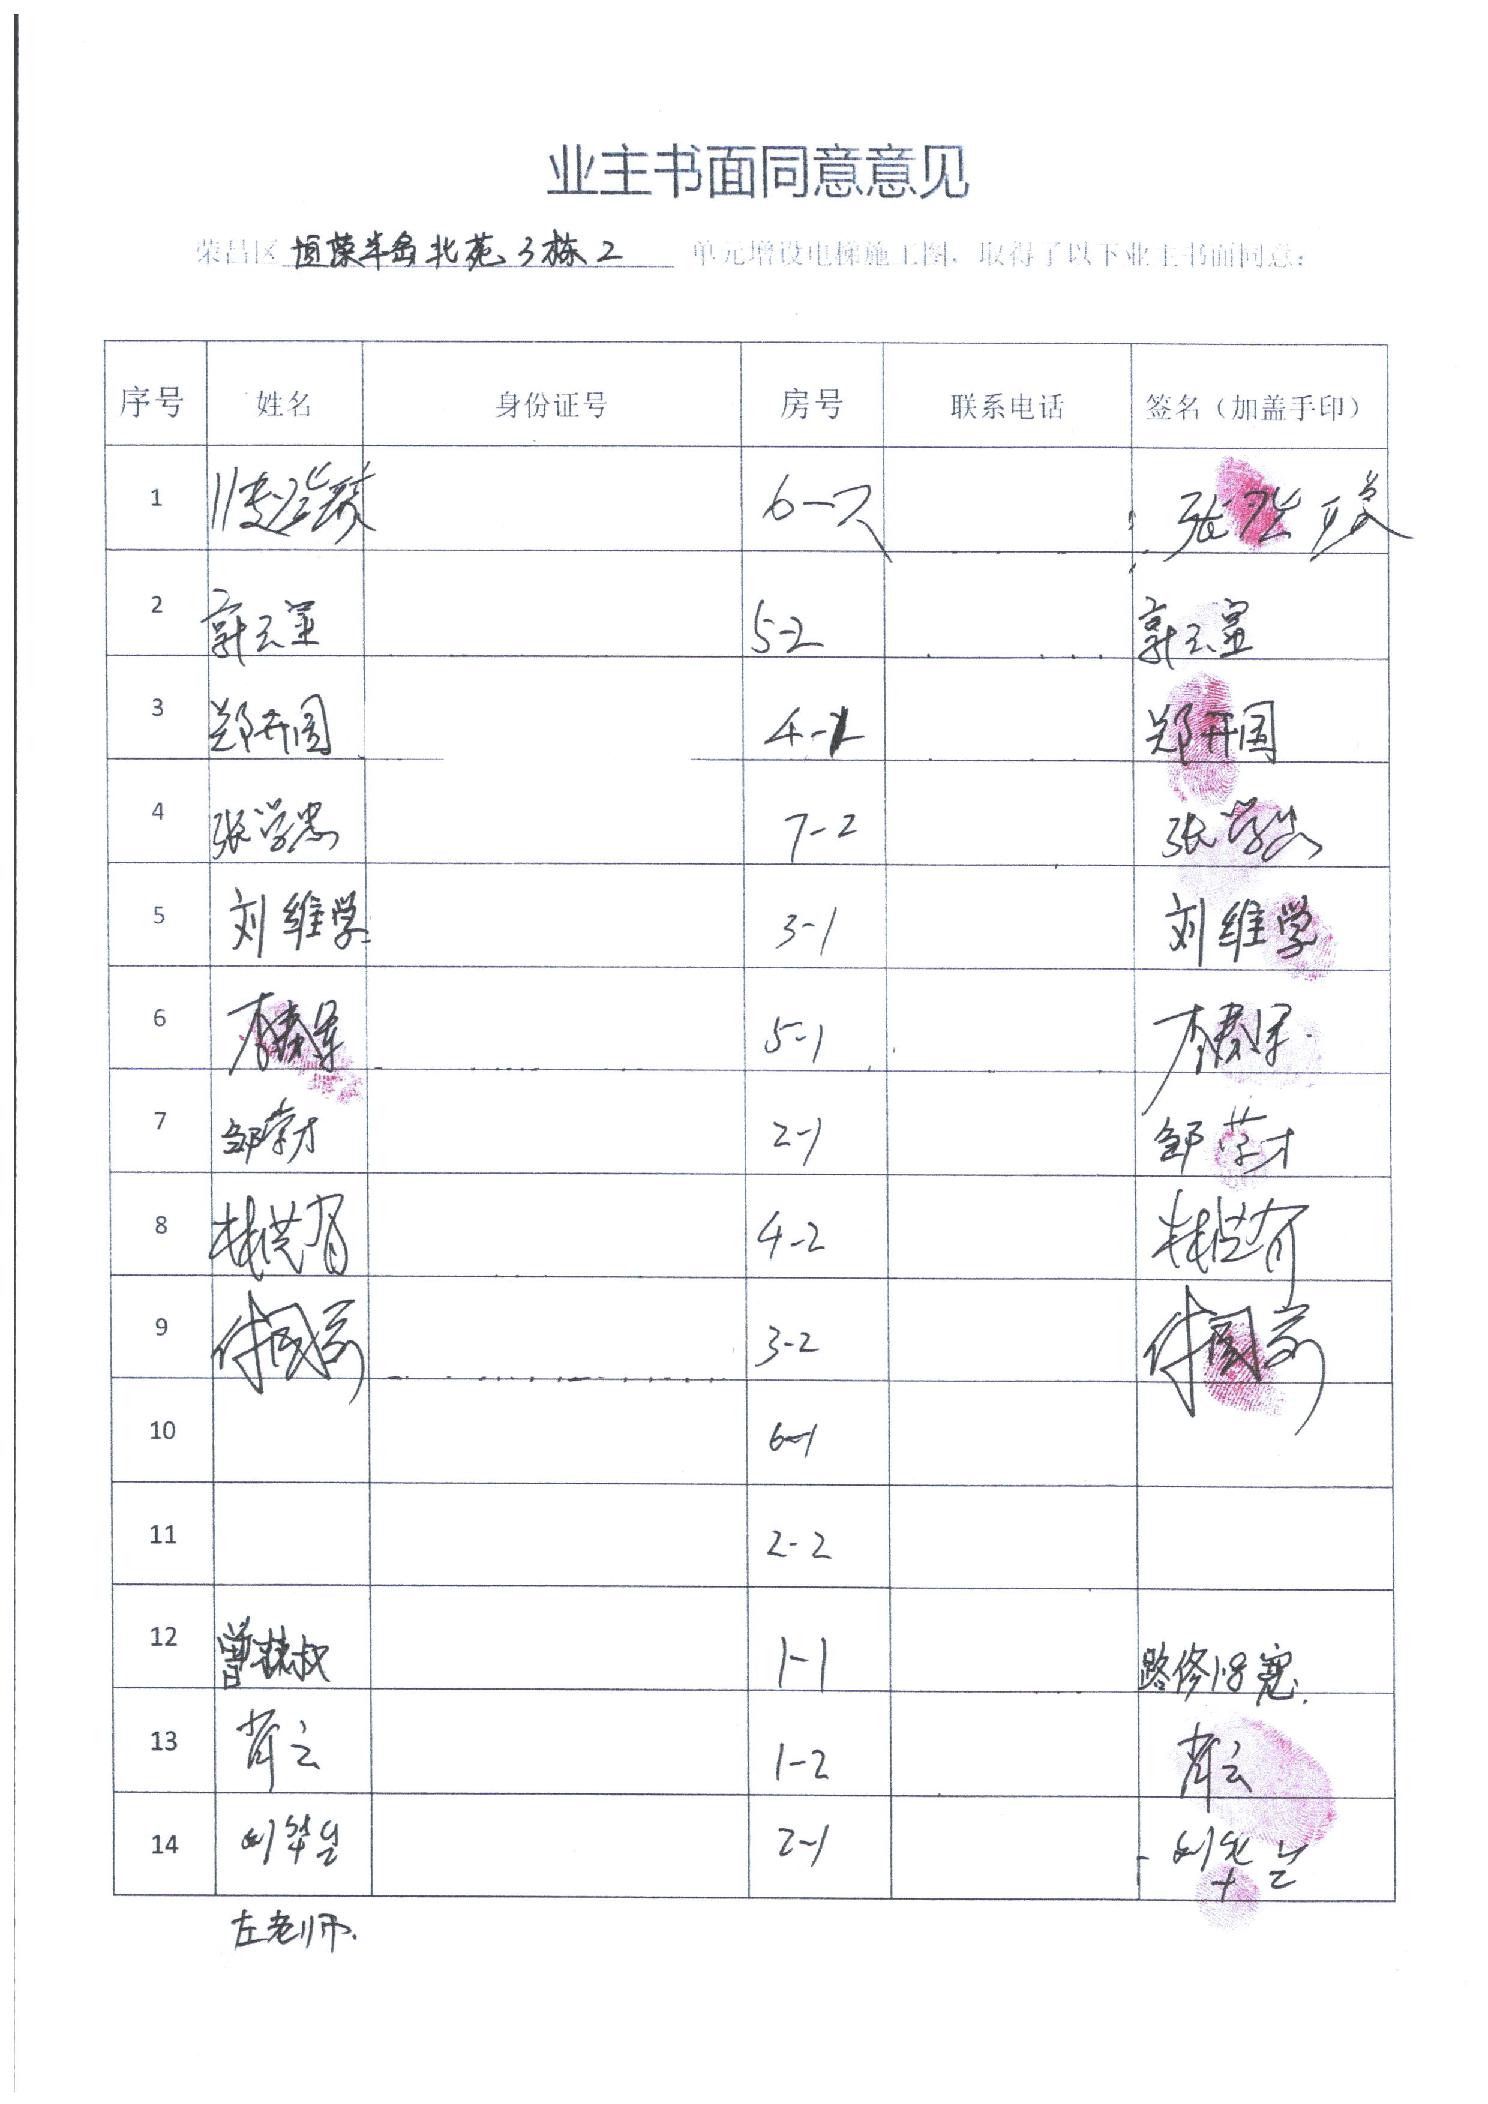 业主书面同意意见
荣昌区 恒荣半岛北苑3栋2 单元增设电梯施工图，取得了以下业主书面同意：
序号 姓名 身份证号 房号 联系电话 签名（加盖手印）
1
2 郭云 5-2 郭云
3 郑开国 郑开国
4 张学忠 7-2 张学忠
5 刘维学 3-1 刘维学
6 李春 5-1 李春
7 邹学才 2-1 邹学才
8 4-2
9 付国 3-2 付国
10 6-1
11 2-2
12 曾 1-1 路修1.8宽.
13 云 1-2 云
14 2-1
左老师.